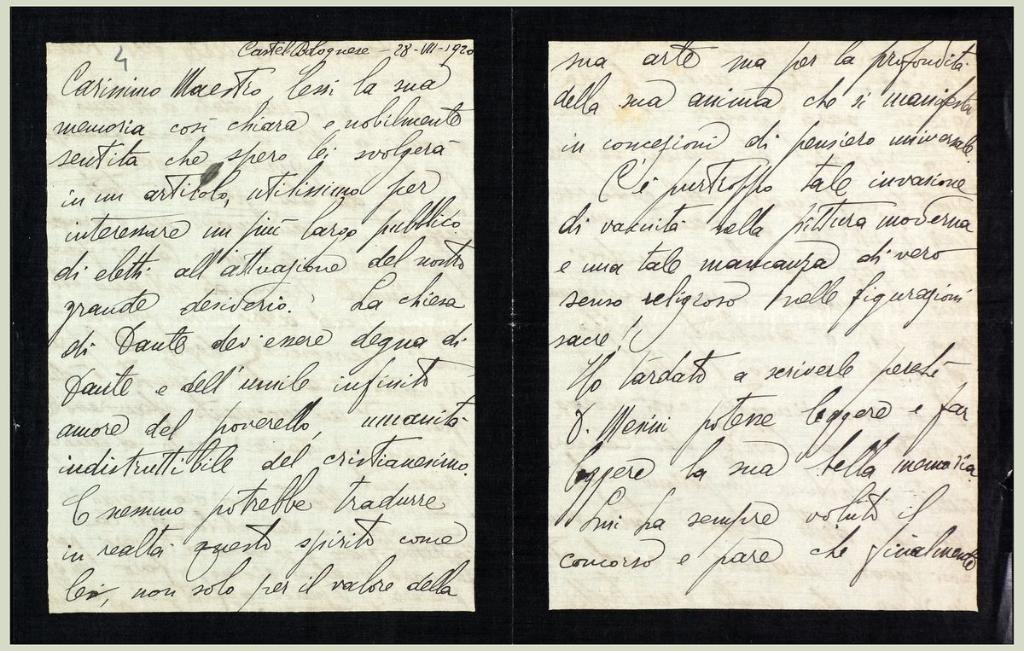 4
Castel Bolognese - 28-VII-1920
Carissimo Maestro, lessi la sua
memoria così chiara e nobilmente
sentita che spero lei svolgerà
in un articolo, utilissimo per
interessare un più largo pubblico
di eletti all'attuazione del nostro
grande desiderio! La chiesa
di Dante dev'essere degna di
Dante e dell'umile infinito
amore del poverello, umanità
indistruttibile del cristianesimo.
E nessuno potrebbe tradurre
in realtà questo spirito come
lei, non solo per il valore della
sua arte ma per la profondità
della sua anima che si manifesta
in concezioni di pensiero universale.
C'è purtroppo tale invasione
di vacuità nella pittura moderna
e una tale mancanza di vero
senso religioso nelle figurazioni
sacre!
Ho tardato a scriverle perché
D. Mesini potesse leggere e far
leggere la sua bella memoria.
Lui ha sempre voluto il
concorso e pare che finalmente